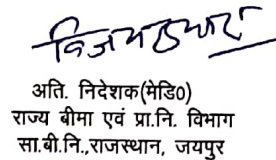 अति. निदेशक(मेडि0)
राज्य बीमा एवं प्रा.नि. विभाग
सा.बी.नि.,राजस्थान, जयपुर